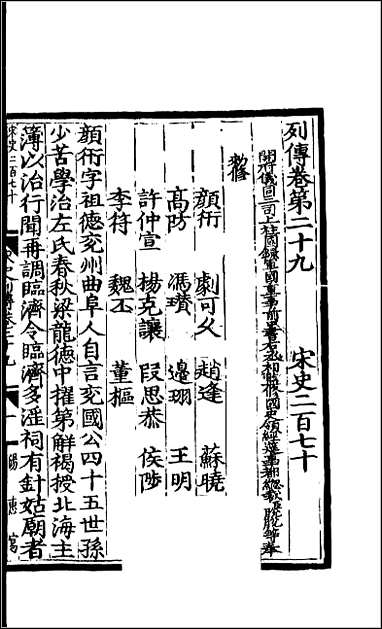 列傳卷第二十九　宋史二百七十
開府儀同三司上柱國錄軍國重事前中書右丞相監修國史領經筵事都總裁臣脫脫等奉
勑修
顏衎　劇可久　趙逢　蘇曉
高防　馮瓚　邊珝　王明
許仲宣　楊克讓　段思恭　侯陟
李符　魏丕　董樞
顏衎字祖德兖州曲阜人自言兖國公四十五世孫
少苦學治左氏春秋梁龍德中擢第解褐授北海主
簿以治行聞再調臨濟令臨濟多淫祠有針姑廟者
宋史二百七十